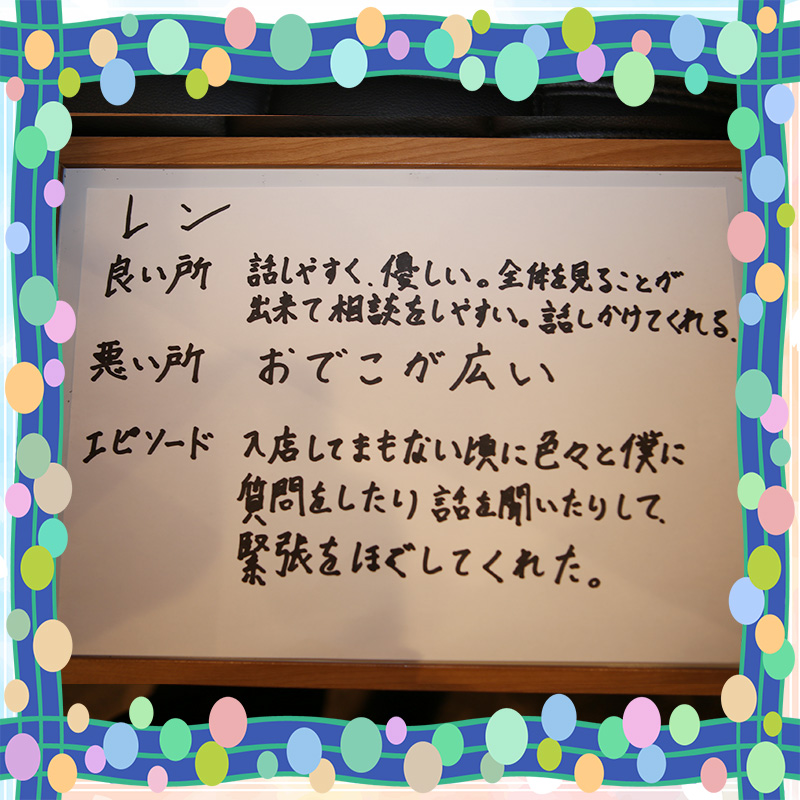 レン
良い所 話しやすく、優しい。全体を見ることが
出来て相談をしやすい。話しかけてくれる。
悪い所 おでこが広い
エピソード 入店してまもない頃に色々と僕に
質問をしたり話を聞いたりして、
緊張をほぐしてくれた。